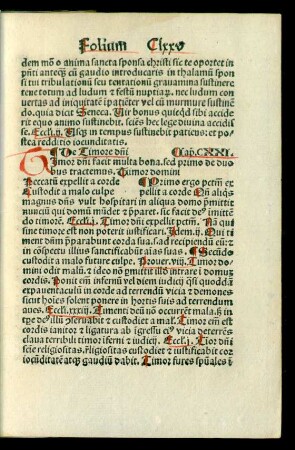 Folium Clxxv
dem mō o anima sancta sponsa christi sic te oportet in
pn̄ti anteq̄ʒ cū gaudio introducaris in thalamū spon
si tui tribulationū seu tentationū grauamina sustinere
tune totum ad ludum ⁊ festū nuptiaꝝ. nec ludum con
uertas ad iniquitatē ipatiēter vel cū murmure sustinē
do. quia dicit Seneca. Uir bonus quicqd sibi accide
rit equo animo sustinebit. sciēs hec lege diuina accidis
se. Eccl.j. Usq̄ in tempus sustinebit patiens: et po
stea redditio iocunditatis.
¶ De Timore dn̄i Cap. CXXI.
Timor dn̄i facit multa bona. sed primo de duo
bus tractemus. Timor domini
Peccatū expellit a corde ¶ Primo ergo pctm̄ ex
Custodit a malo culpe pellit a corde Qn̄ aliqs
magnus dn̄s vult hospitari in aliqua domo p̄mittit
nunciū qui domū mūdet ⁊ p̄paret. sic facit deꝰ imittē
do timorē. Eccl.j. Timor dn̄i expellit pctm̄. Nā qui
sine timore est non poterit iustificari. Idem.ij. Qui ti
ment dn̄m p̄parabunt corda sua. ad recipiendū eū: et
in cōspectu illius sanctificabūt aīas suas. ¶ Secūdo
custodit a malo future culpe. Prouer.viij. Timor do
mini odit malū. ⁊ ideo nō p̄mittit illud intrare ī domū
cordis. Ponit em̄ infernū vel diem iudicij q̄si quoddā
expauentaculū in corde ad terrendū vicia ⁊ demones
sicut hoīes solent ponere in hortis suis ad terrendum
aues. Eccl.xxxiij. Timenti deū nō occurrent mala. ß in
tēpe deꝰ illū ꝯseruabit ⁊ custodiet a mal. Timor em̄ est
cordis ianitor ⁊ ligatura ab īgressu eiꝰ vicia deterrēs
claua terribili timor īferni ⁊ iudicij. Eccl.j. Tīor dn̄i
scie religiositas. Religiositas custodiet ⁊ iustificabit cor
iocūditatē atq̄ʒ gaudiū dabit. Timor fures spūales ī